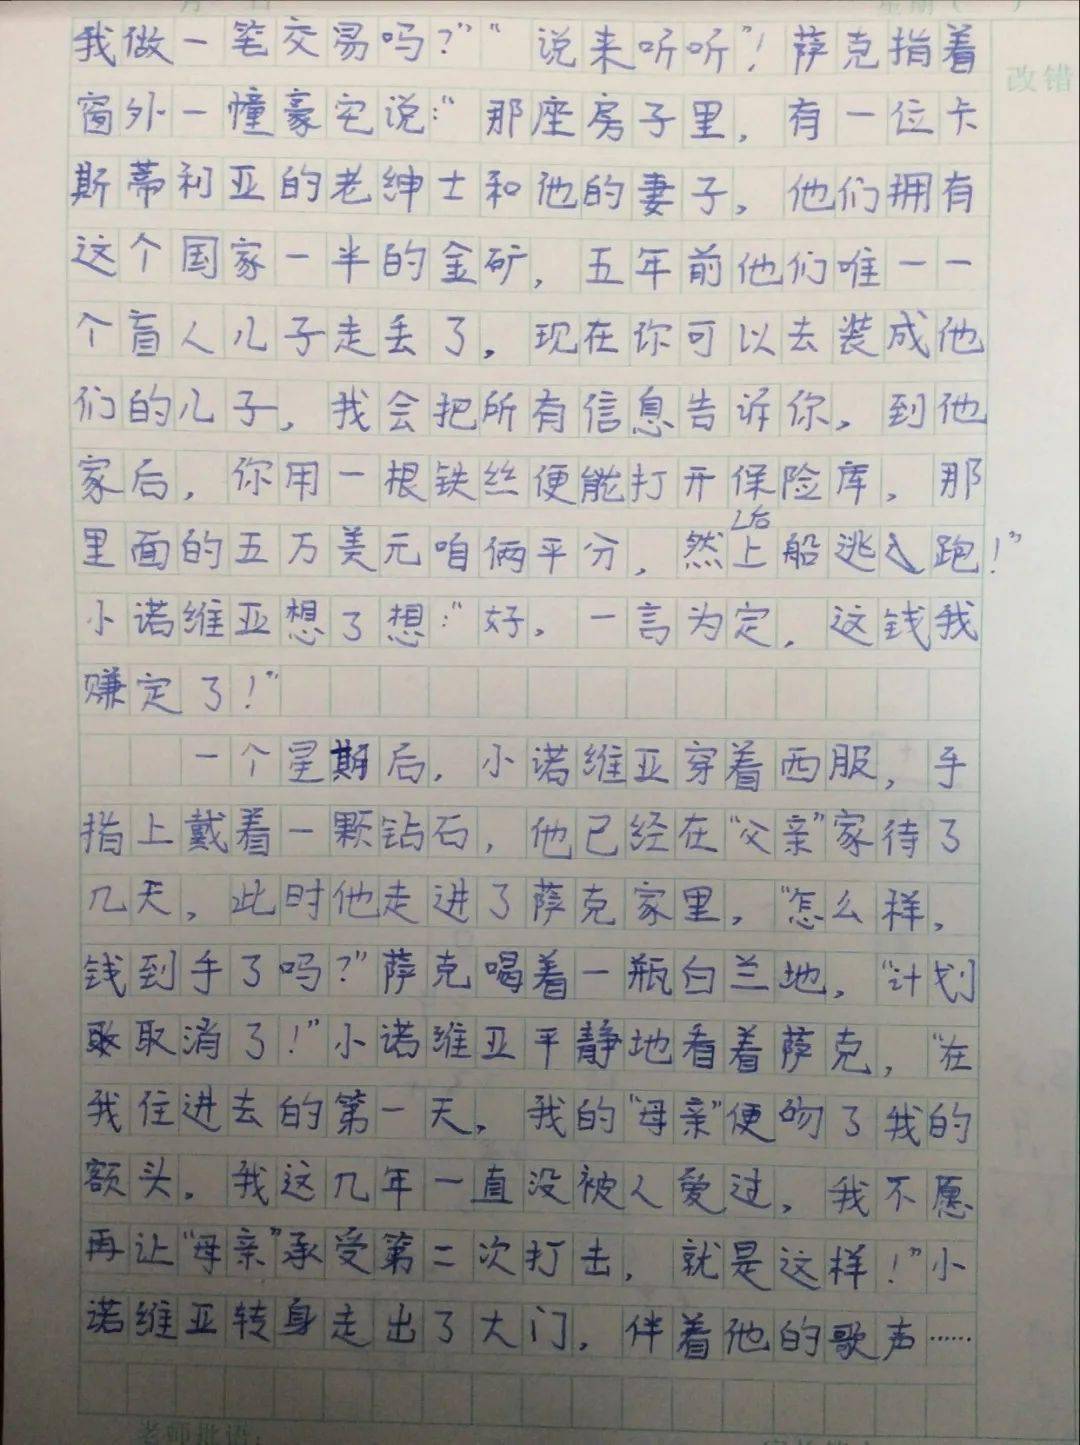 我做一笔交易吗?”“说来听听”!萨克指着
改错
窗外一幢豪宅说:“那座房子里,有一位卡
斯蒂利亚的老绅士和他的妻子,他们拥有
这个国家一半的金矿,五年前他们唯一一
个盲人儿子走丢了,现在你可以去装成他
们的儿子,我会把所有信息告诉你,到他
家后,你用一根铁丝便能打开保险库,那
里面的五万美元咱俩平分,然后上船逃跑!”
小诺维亚想了想:“好,一言为定,这钱我
赚定了!”
一个星期后,小诺维亚穿着西服,手
指上戴着一颗钻石,他已经在“父亲”家待了
几天,此时他走进了萨克家里,“怎么样,
钱到手了吗?”萨克喝着一瓶白兰地,“计划
取消了!”小诺维亚平静地看着萨克,“在
我住进去的第一天,我的“母亲”便吻了我的
额头。我这几年一直没被人爱过,我不愿
再让“母亲”承受第二次打击,就是这样!”小
诺维亚转身走出了大门,伴着他的歌声……
老师批语: